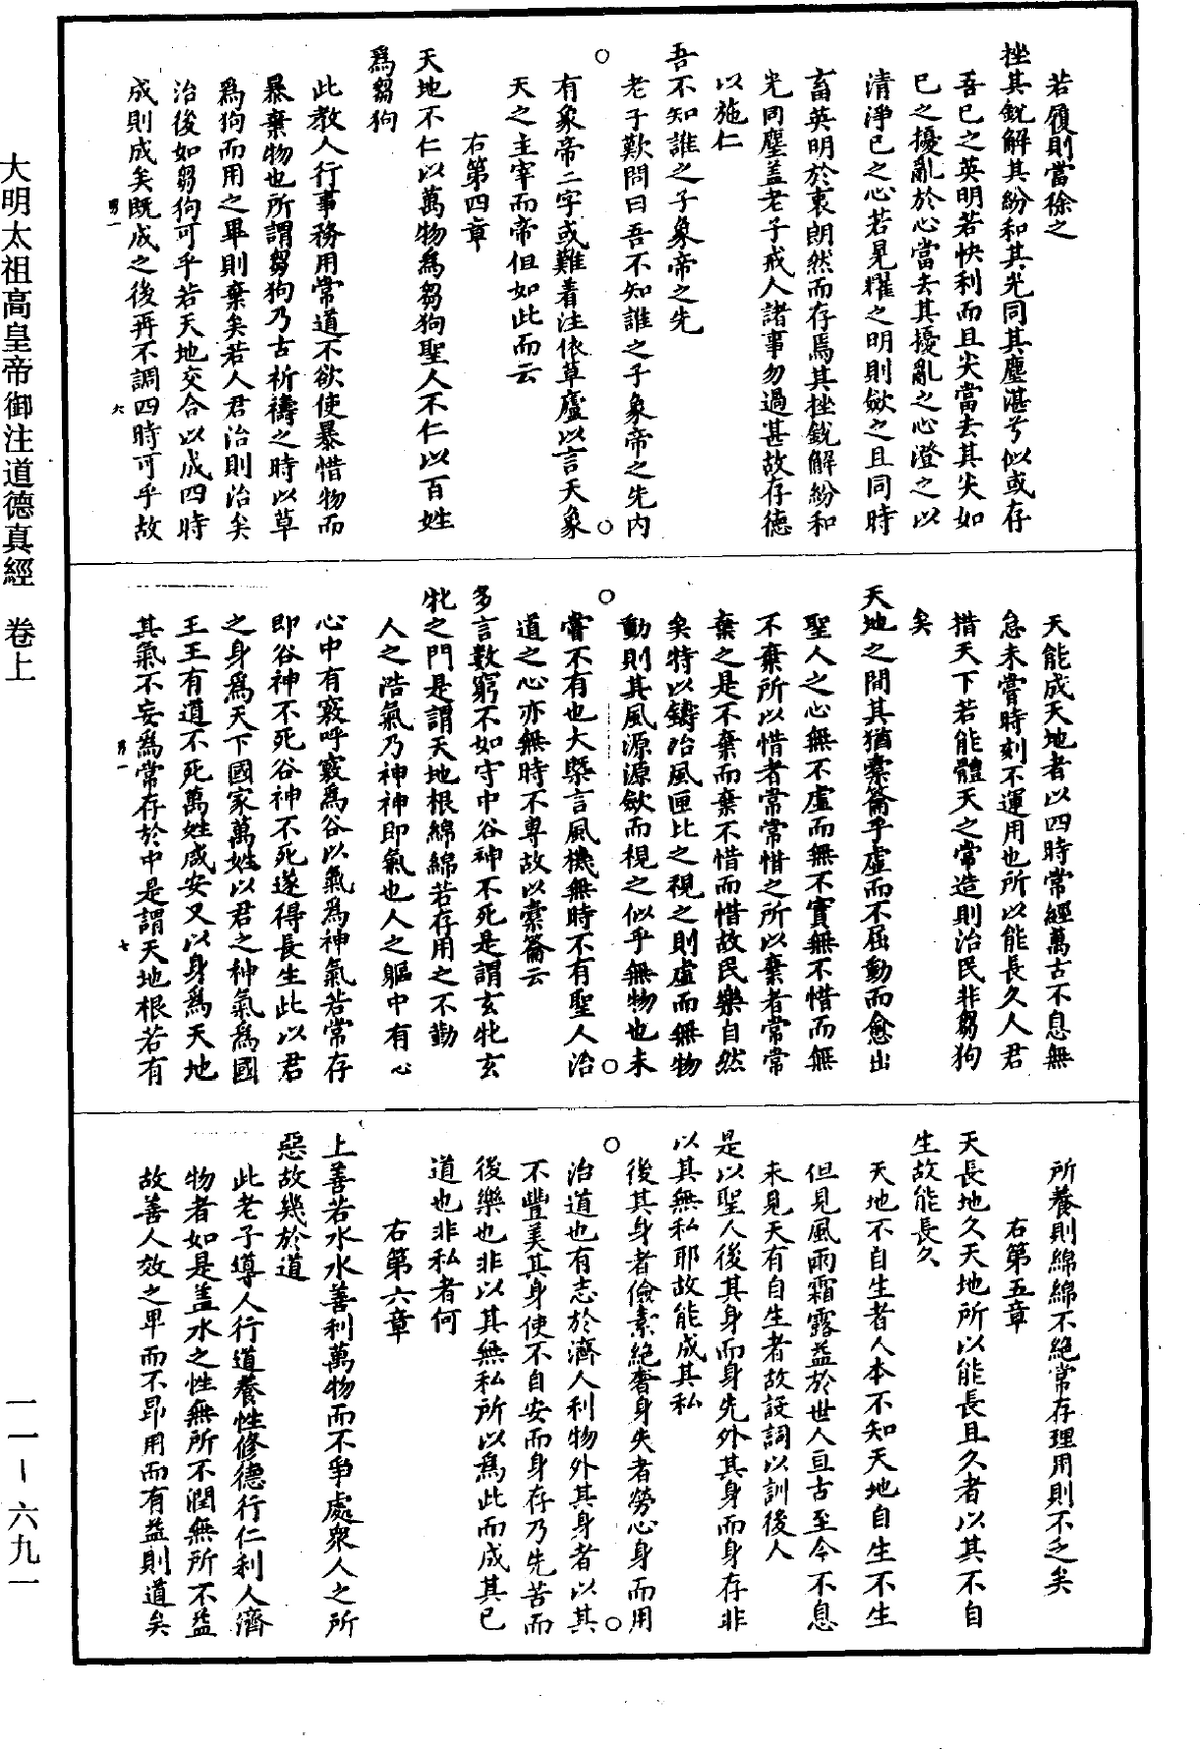 若履則當徐之
挫其銳解其紛和其光同其塵湛兮似或存
吾己之英明若快利而且尖當去其尖如
己之擾亂於心當去其擾亂之心澄之以
清淨己之心若見耀之明則歛之且同時
畜英明於衷朗然而存焉其挫銳解紛和
光同塵盖老子戒人諸事勿過甚故存德
以施仁
吾不知誰之子象帝之先
老子歎問曰吾不知誰之子象帝之先内
有象帝二字或難着注依草廬以言天象
天之主宰而帝但如此而云
右第四章
天地不仁以萬物爲芻狗聖人不仁以百姓
爲芻狗
此教人行事務用常道不欲使暴惜物而
暴棄物也所謂芻狗乃古祈禱之時以草
爲狗而用之畢則棄矣若人君治則治矣
治後如芻狗可乎若天地交合以成四時
成則成矣既成之後再不調四時可乎故
天能成天地者以四時常經萬古不息無
怠未嘗時刻不運用也所以能長久人君
措天下若能體天之常造則治民非芻狗
矣
天地之間其猶橐籥乎虛而不屈動而愈出
聖人之心無不虛而無不實無不惜而無
不棄所以惜者常常惜之所以棄者常常
棄之是不棄而棄不惜而惜故民樂自然
矣特以鑄冶風匣比之視之則虛而無物
動則其風源源歛而視之似乎無物也未
嘗不有也大槩言風機無時不有聖人治
道之心亦無時不專故以橐籥云
多言數窮不如守中谷神不死是謂玄牝玄
牝之門是謂天地根綿綿若存用之不勤
人之浩氣乃神神即氣也人之軀中有心
心中有竅呼竅爲谷以氣爲神氣若常存
即谷神不死谷神不死遂得長生此以君
之身爲天下國家萬姓以君之神氣爲國
王王有道不死萬姓咸安又以身爲天地
其氣不妄爲常存於中是謂天地根若有
所養則綿綿不絶常存理用則不乏矣
右第五章
天長地久天地所以能長且久者以其不自
生故能長久
天地不自生者人本不知天地自生不生
但見風雨霜露益於世人亘古至今不息
未見天有自生者故設詞以訓後人
是以聖人後其身而身先外其身而身存非
以其無私耶故能成其私
後其身者儉素絶奢身先者勞心身而用
治道也有志於濟人利物外其身者以其
不豐美其身使不自安而身存乃先苦而
後樂也非以其無私所以爲此而成其已
道也非私者何
右第六章
上善若水水善利萬物而不爭處衆人之所
惡故幾於道
此老子導人行道養性修德行仁利人濟
物者如是盖水之性無所不潤無所不益
故善人效之卑而不昻用而有益則道矣
大明太祖高皇帝御注道德真經 卷上
一一－六九一